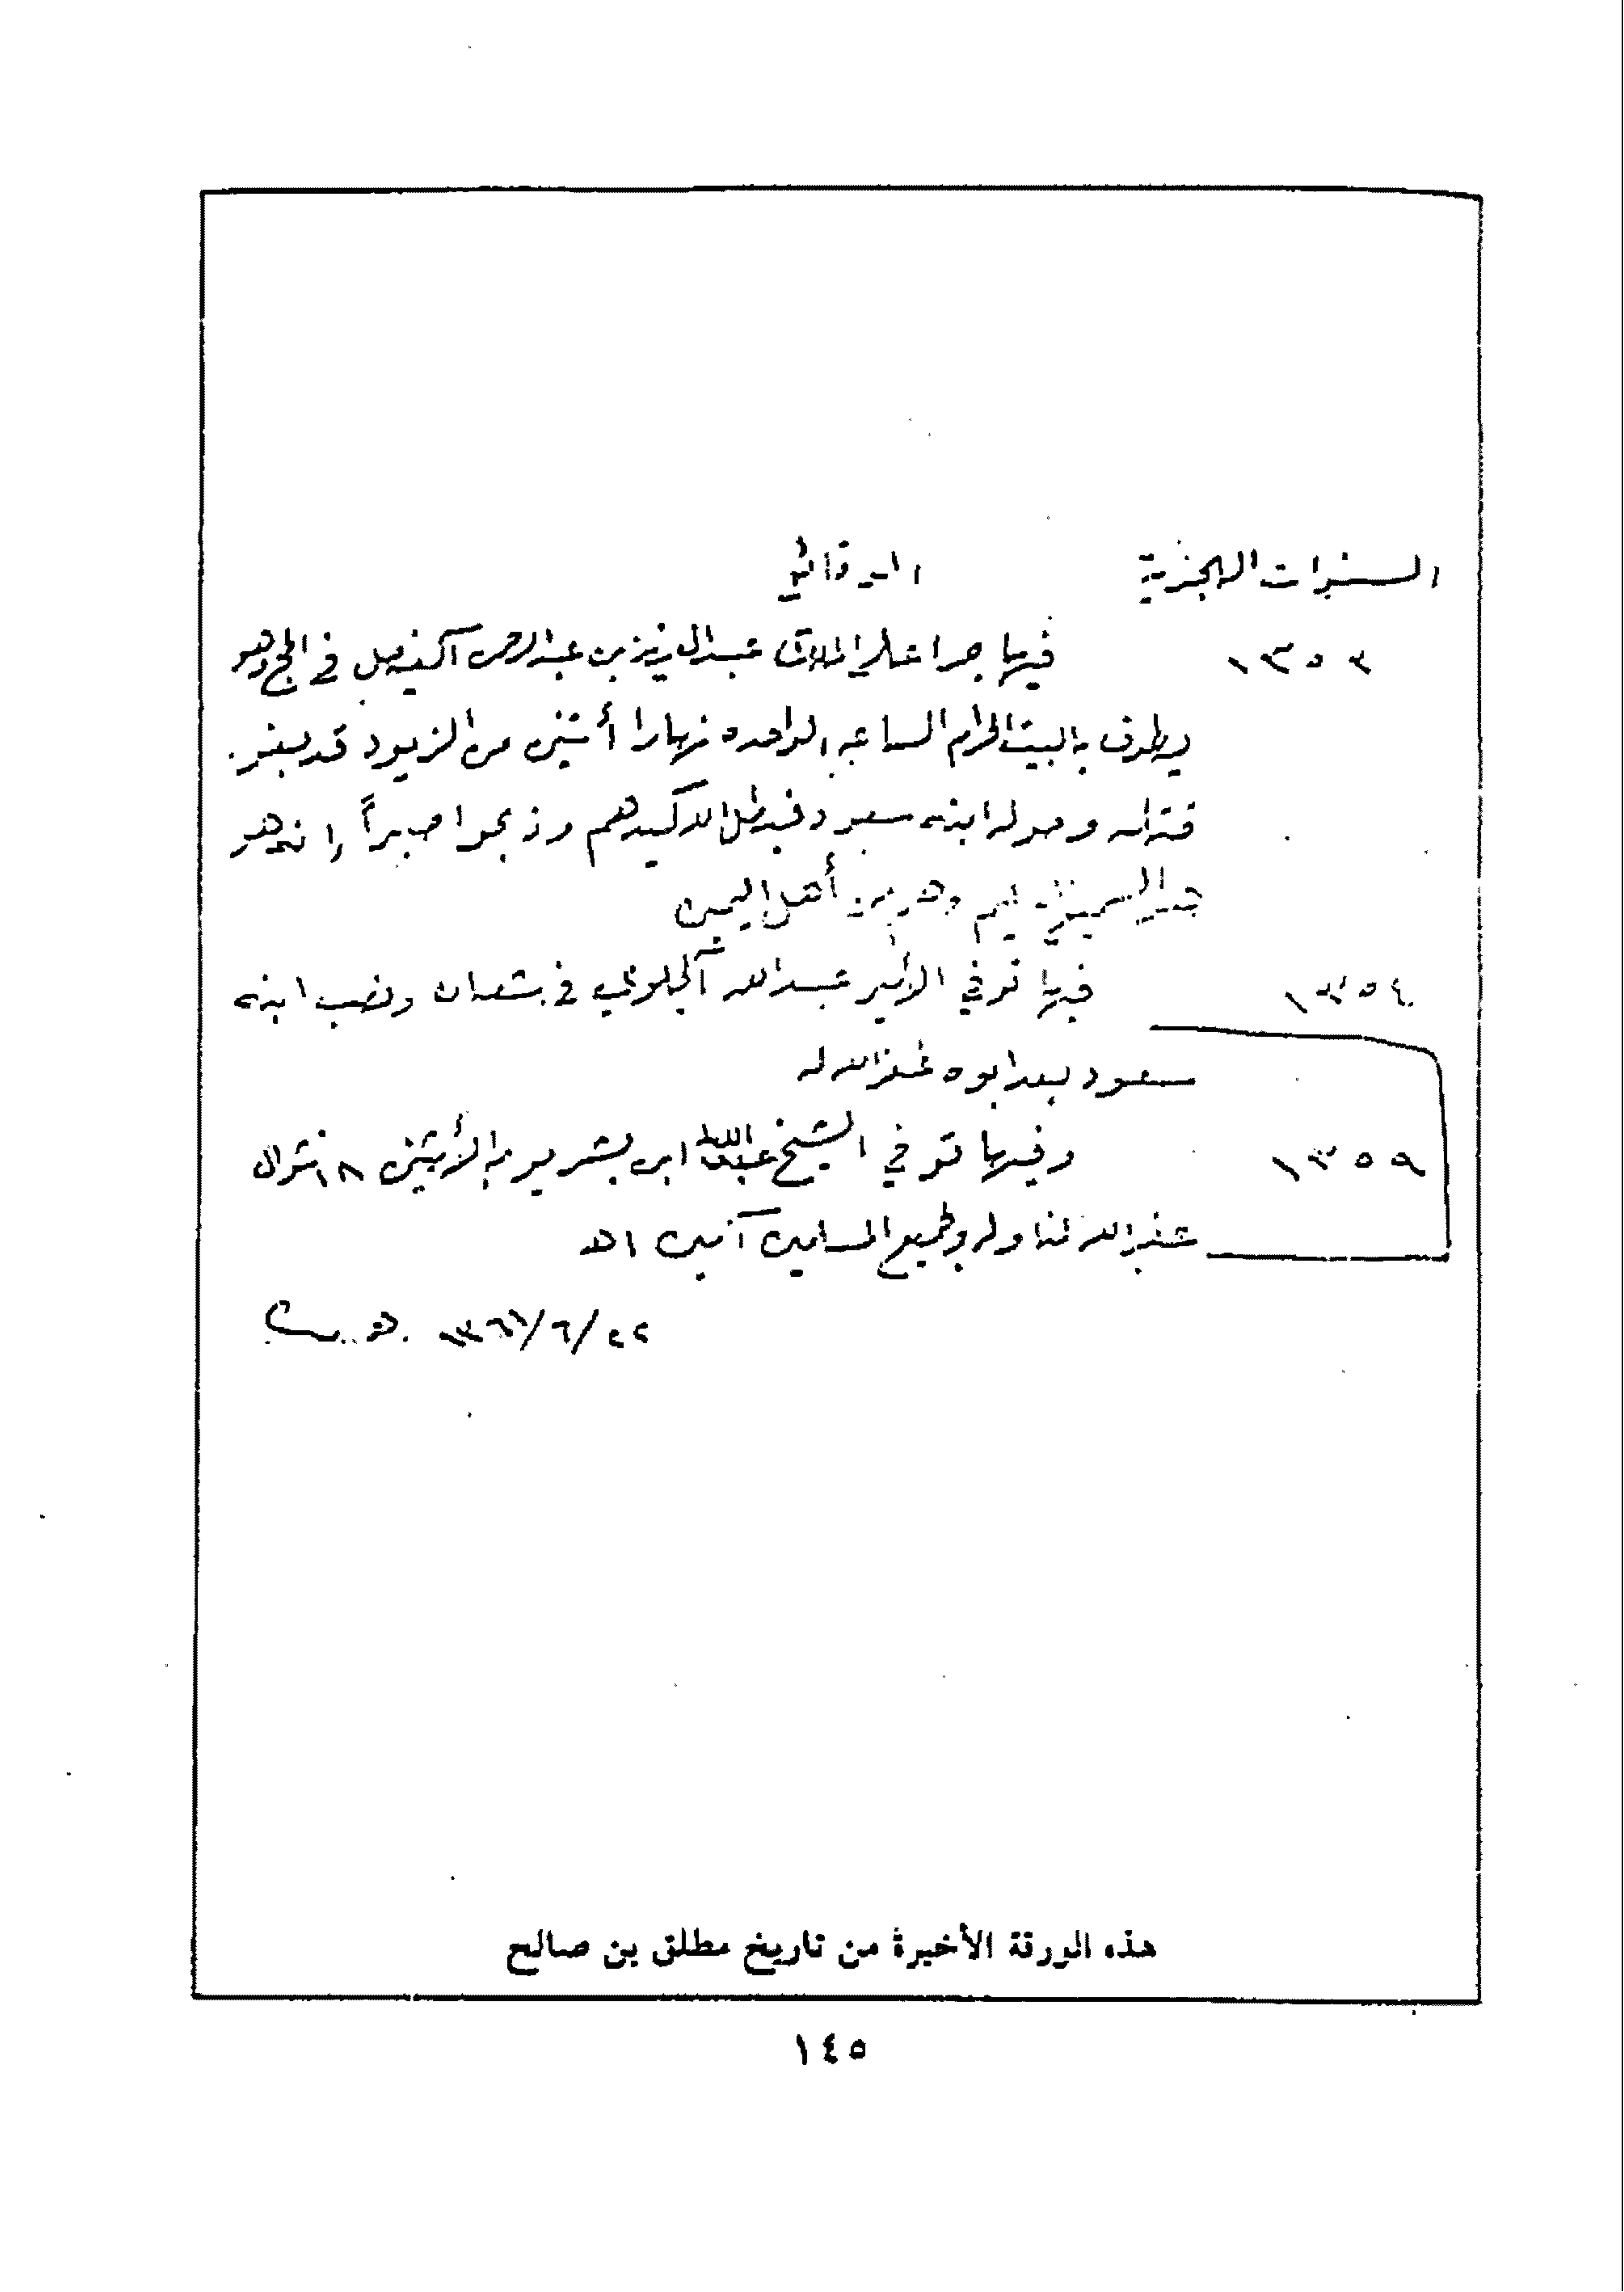 السنوات الهجرية الوقائع
١٣٥٣ فيها جرا على الملك عبدالعزيز بن عبدالرحمن آل فيصل في الحج وهو
يطوف بالبيت الحرام الساعه الواحده نهارا أثنين من الزيود قد بغو
قتله وحوله ابنه سعود فبطل الله كيدهم وذبحوا صبراً إنه هو
السميع وهم من أهل اليمن
١٣٥٤ فيها توفي الأمير عبدالله آل جلوي في شعبان ونصب ابنه
سعود بعد ابوه غفر الله له
١٣٥٩ وفيها توفي الشيخ عبدالله ابن بشر يوم الأثنين ١٨ شوال
غفر الله لنا وله ولجميع المسلمين آمين اهـ
٢٢/٦/١٣٦٦ هـ
هذه الورقة الأخيرة من تاريخ مطلق بن صالح
١٤٥